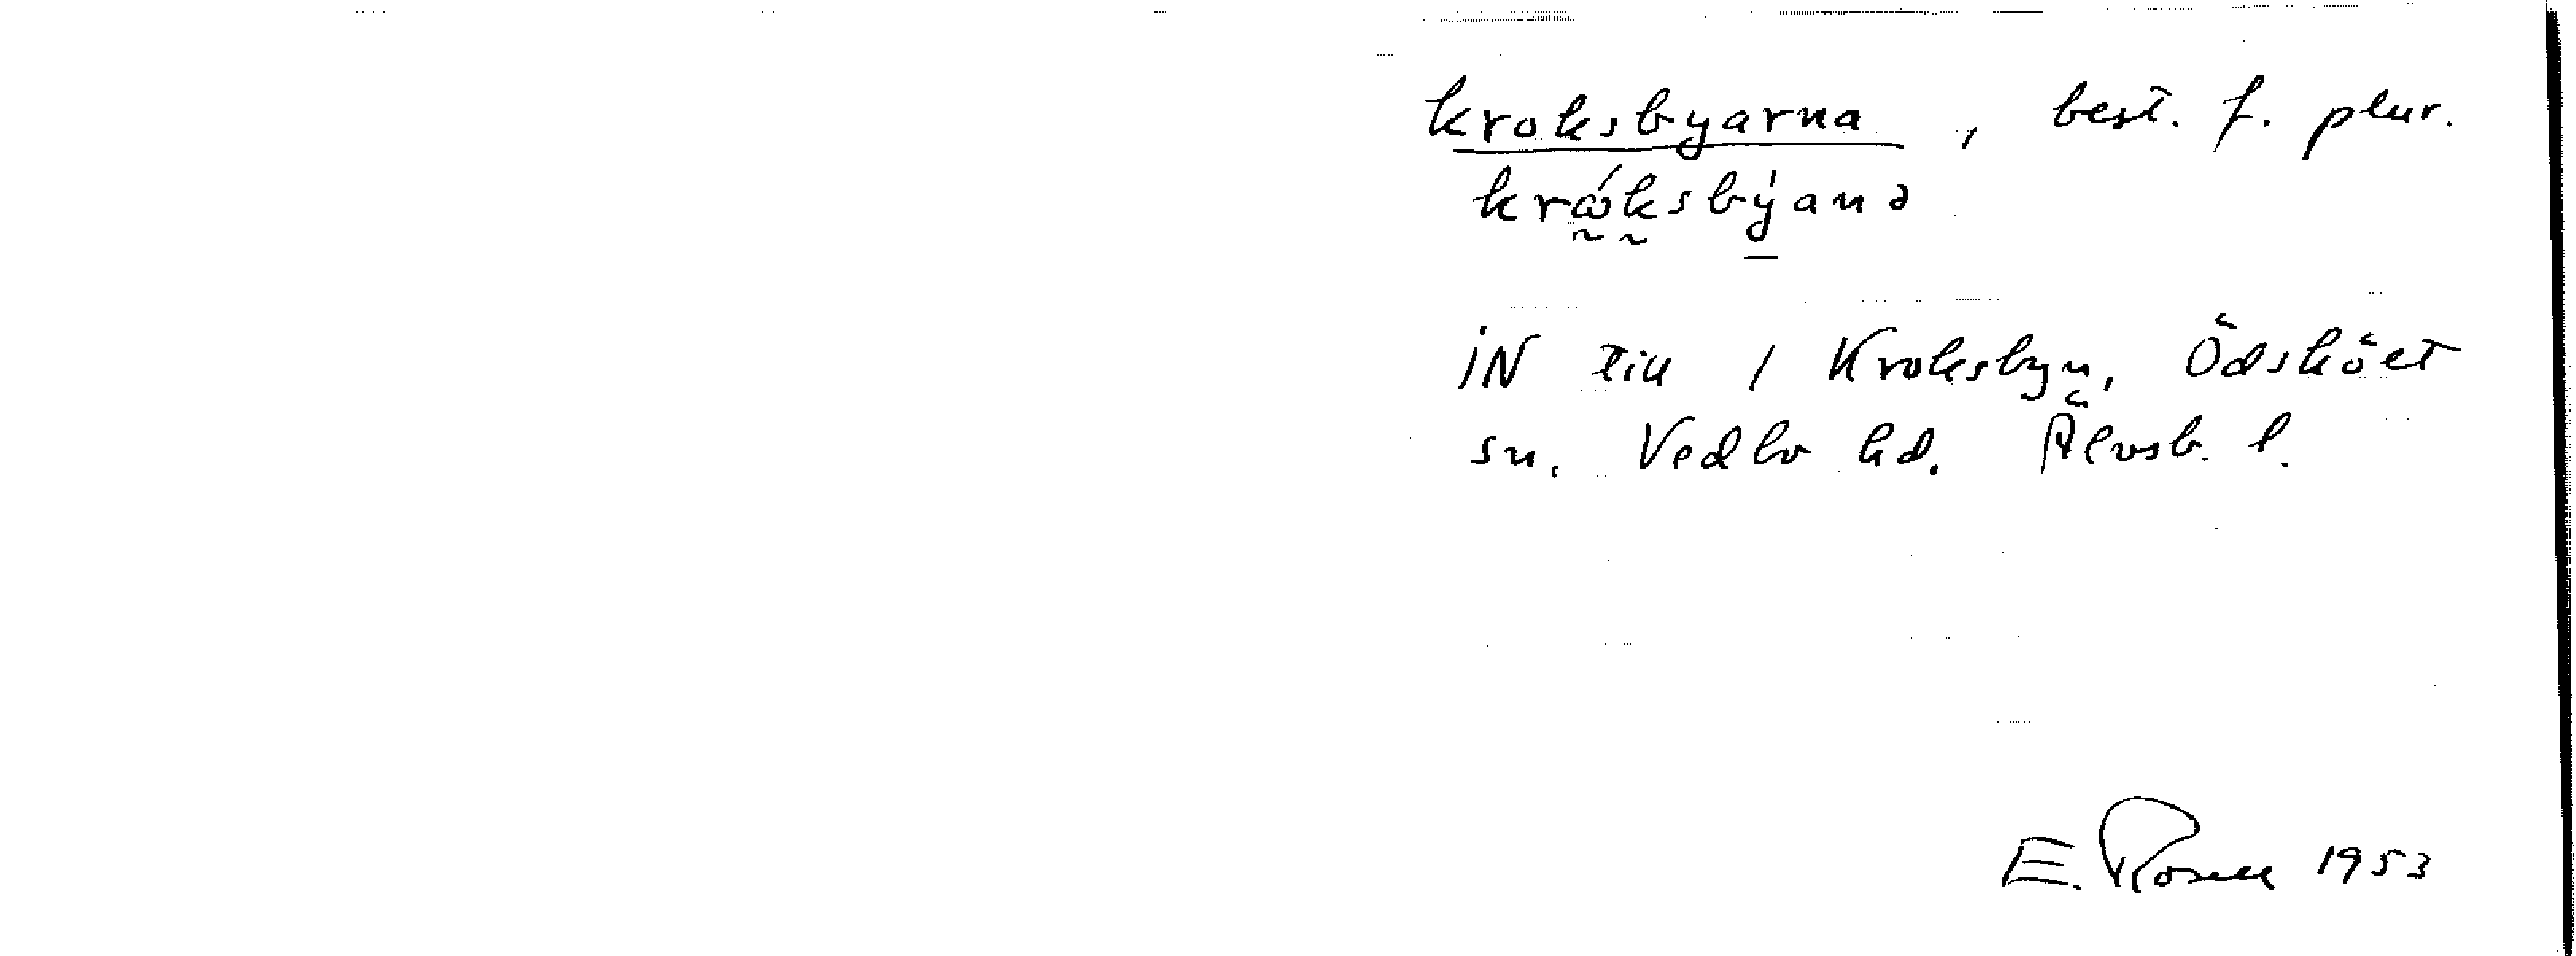 kroksbyarna, best. f. plur.
krώksby̍anə
iN till / Kroksbyn, Ödskölt
sn. Vedbo hd. Älvsb. l.
E. Rosell 1953